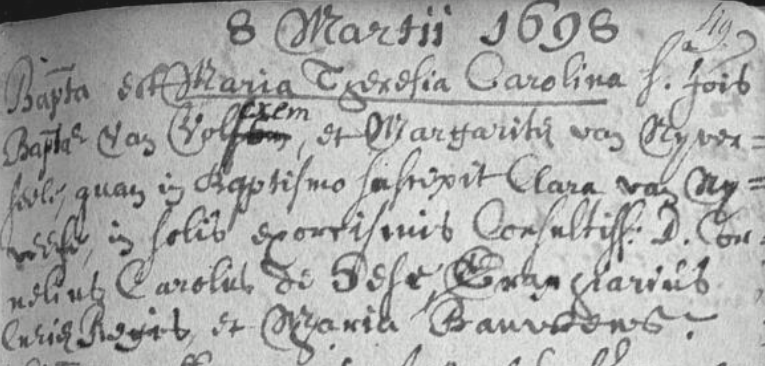 8 Martii 1698
Bapta est Maria Theresia Carolina f. Jois
Baptae Van Volxem, et Margaritae van Nyver=
seele, quam in Baptismo suscepit Clara van Ny=
verseel, in solis exorcismis Consultiss. D. Cor=
nelius Carolus De Dese, Graphiarius
Curiae Regis, et Maria Bauwens.